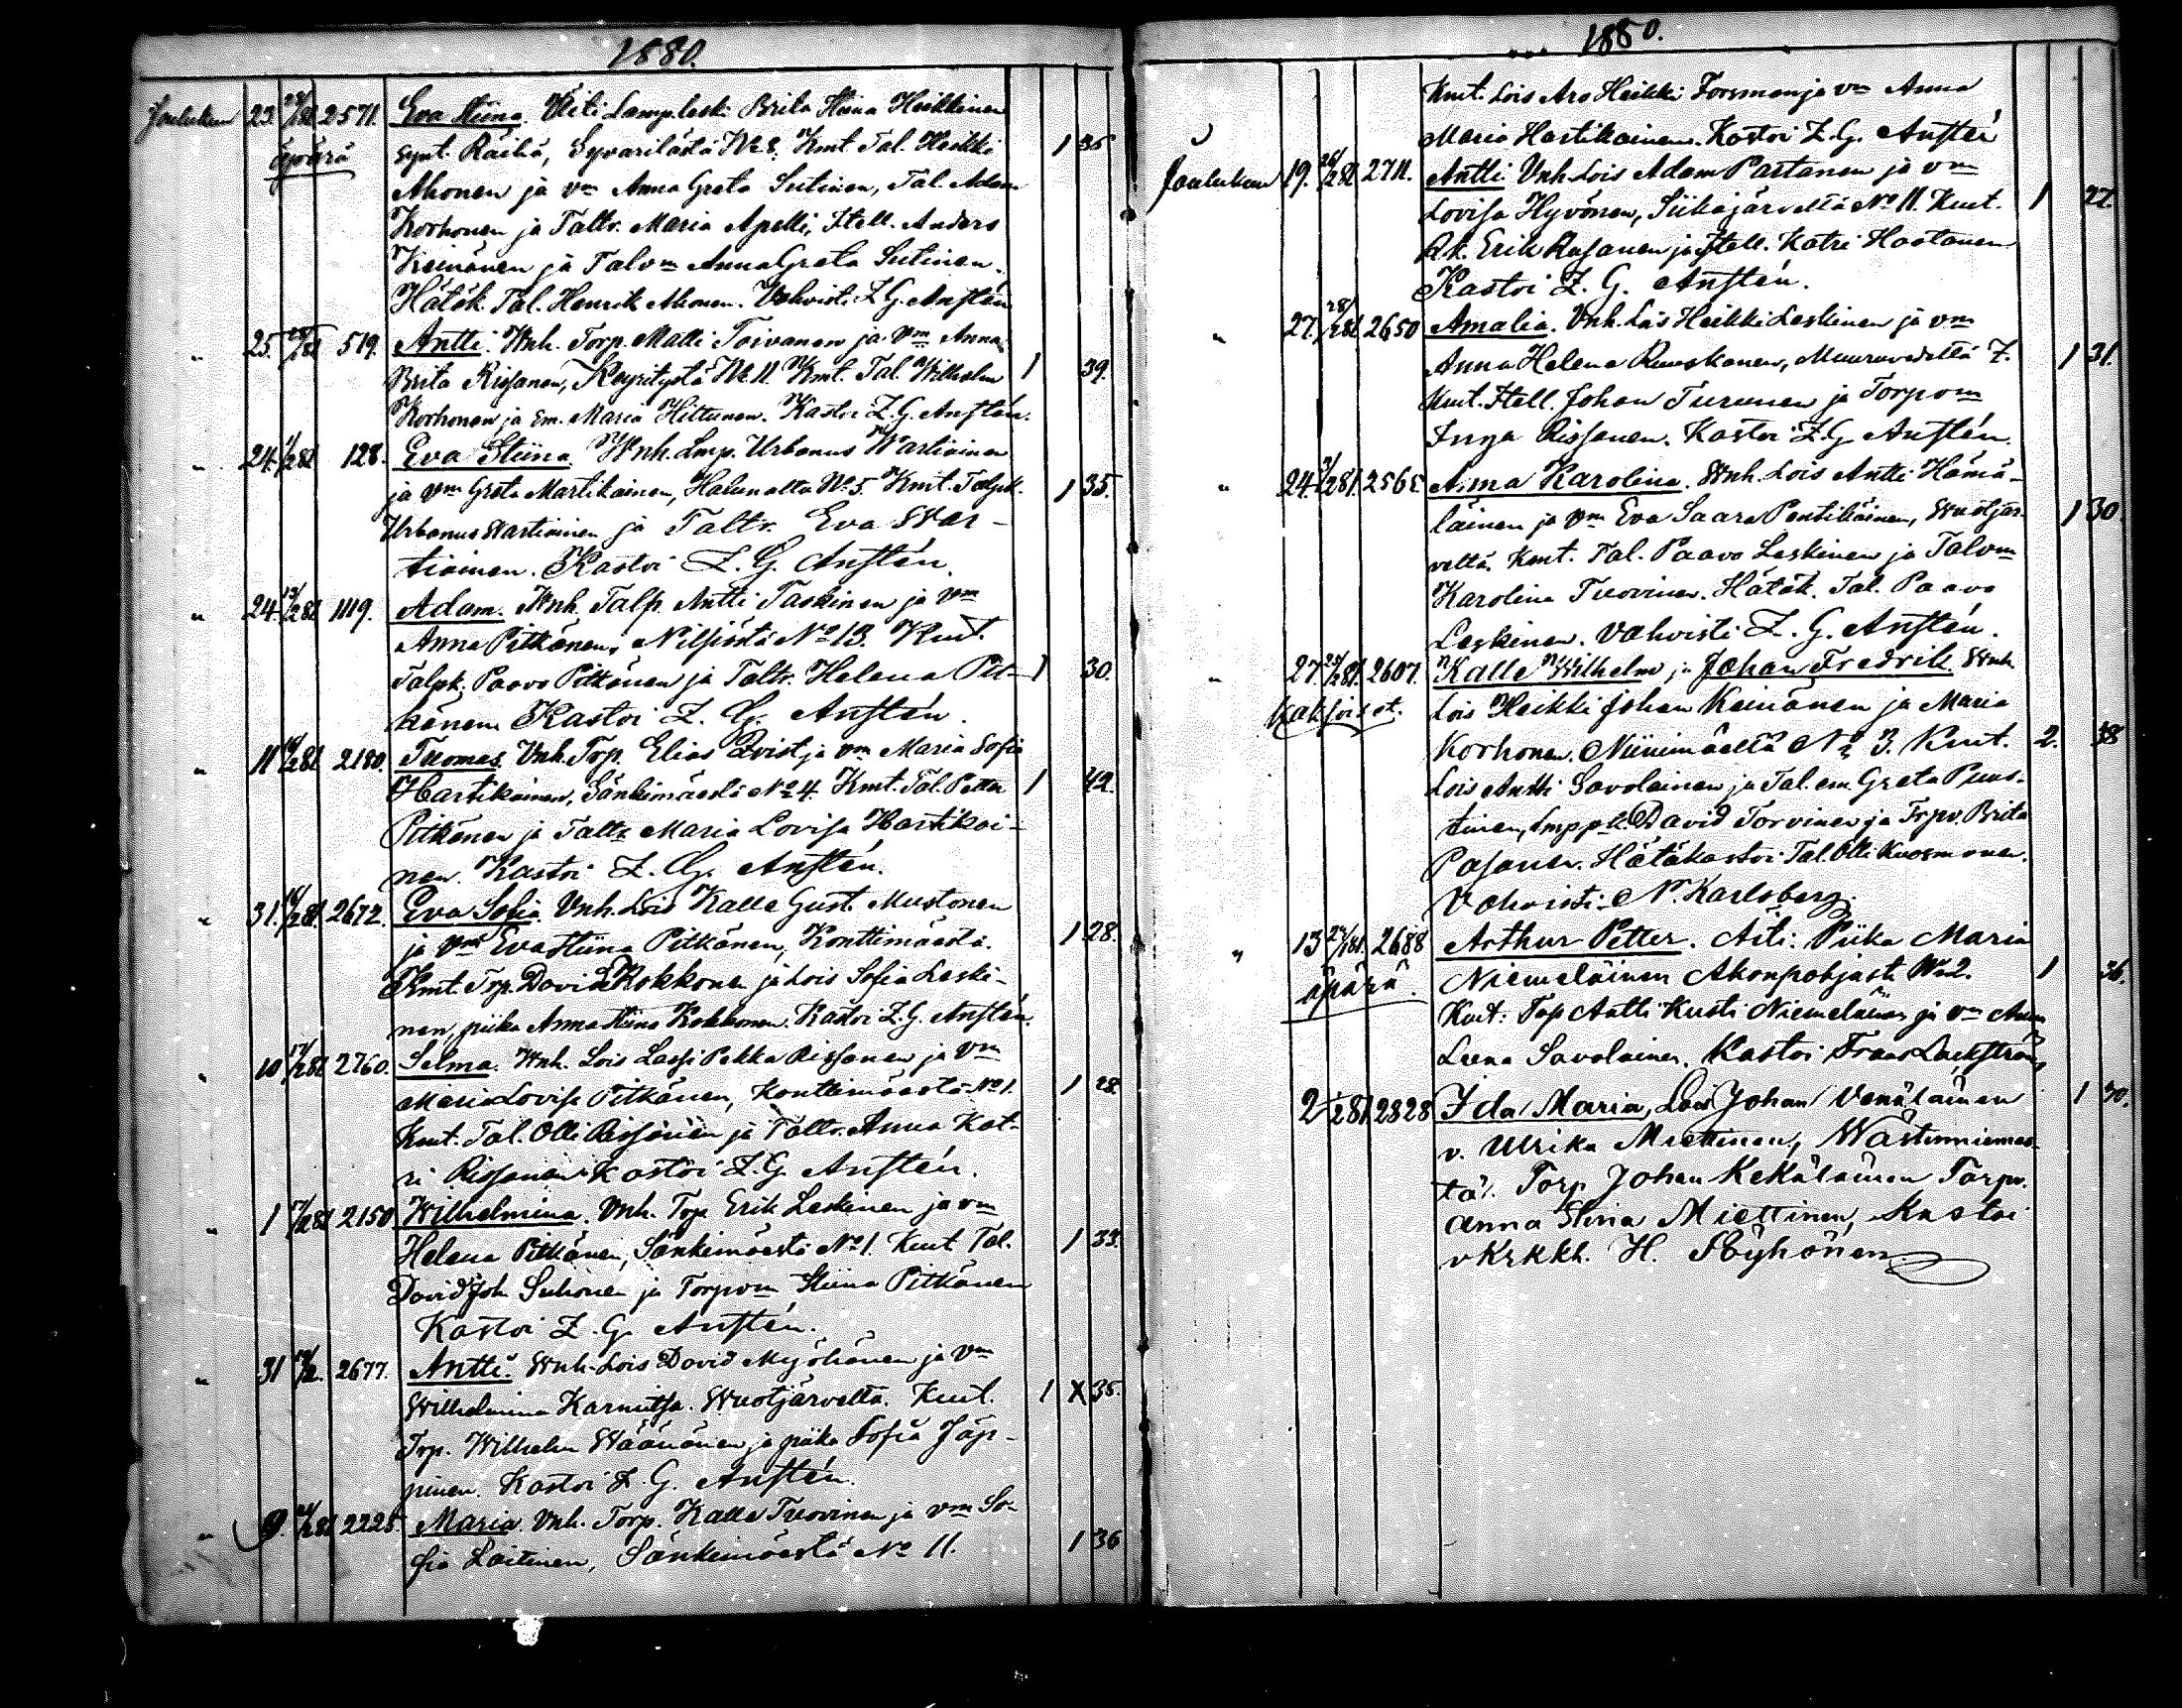 1880.
Joulukun 23. 28/1 81 2571. Eva Stiina. Äiti: Lamp. lesk. Brita Stiina Heikkinen
äpärä synt. Räihä, Syvärilästä No 8. Kmt. Tal. Heikki 1 35
Ahonen ja vm Anna Greta Sutinen, Tal. Adam
Korhonen ja Taltr. Maria Apelli, Itell. Anders
Keinänen ja Talvm Anna Greta Sutinen.
Hätäk. Tal. Henrik Ahonen. Vahvisti Z. G. Anstén
" 25. 519. Antti. Wnh. Torp. Matti Toivanen ja vm Anna
Brita Rissanen, Keyritystä No 11. Kmt. Tal. Wilhelm 1 39.
Korhonen ja Em. Maria Hiltunen. Kastoi Z. G. Anstén.
" 24. /2 81 128. Eva Stiina. Wnh. Lmp. Urbanus Wartiainen
ja vm Greta Martikainen, Halunalta No 5. Kmt. Talpk. 1 35.
Urbanus Wartiainen ja Taltr. Eva War-
tiainen. Kastoi Z. G. Anstén.
" 24. 13/2 81 1119. Adam. Wnh. Talp. Antti Taskinen ja vm
Anna Pitkänen, Nilsiästä No 13. Kmt.
Talpk. Paavo Pitkänen ja Taltr. Helena Pit- 1 30.
känen Kastoi Z. G. Anstén.
" 11 /2 81 2180. Tuomas. Vnh. Trp. Elias Qvist ja vm Maria Sofia
Hartikainen, Sänkimäestä No 4. Kmt. Tal. Petter 1 42.
Pitkänen ja Taltr Maria Lovisa Hartikai-
nen. Kastoi Z. G. Anstén.
" 31. /2 81. 2672. Eva Sofia. Vnh. Lois Kalle Gust. Mustonen
ja vm Eva Stiina Pitkänen, Konttimäestä. 1 28.
Kmt. Trp. David Kokkonen ja Lois Sofia Leski-
nen, piika Anna Stiina Kokkonen. Kastoi Z. G. Anstén.
" 10 17/2 81 2760. Selma. Wnh. Lois Lassi Pekka Rissanen ja vm
Maria Lovisa Pitkänen, Konttimäestä No 1. 1 28.
Kmt. Tal. Olli Rissanen ja Taltr. Anna Kat-
ri Rissanen Kastoi Z. G. Anstén.
" 1 /2 81 2150 Wilhelmina. Vnh. Trp. Erik Leskinen ja vm
Helena Pitkänen, Sänkimäestä No 1. Kmt Tal. 1 33.
David Joh Suhonen ja Torpvm Stiina Pitkänen
Kastoi Z. G. Anstén.
" 31 2677. Antti. Wnh. Lois David Myöhänen ja vm
Wilhelmina Karnutsa. Wuotjärveltä. Kmt. 1 X 35.
Trp. Wilhelm Wäänänen ja piika Sofia Jäp-
pinen. Kastoi Z. G. Anstén.
" 9. /2 81 2225 Maria. Vnh. Torp. Kalle Tuovinen ja vm So-
fia Laitinen, Sänkimäestä No 11. 1 36
1880.
Kmt. Lois Aro Heikki Forsman ja vm Anna
Maria Hartikainen. Kastoi Z. G. Anstén
Joulukun 19. 26/2 81 2711. Antti Vnh. Lois Adam Partanen ja vm
Lovisa Hyvönen, Siikajärveltä No 11. Kmt. 1 27.
Rk. Erik Rasanen ja Itell. Katri Haatanen
Kastoi Z. G. Anstén.
" 27. 28/2 81 2650 Amalia. Vnh. Lois Heikki Leskinen ja vm
Anna Helena Ruuskanen, Muuruvedeltä 7. 1 31.
Kmt. Itell. Johan Turunen ja Torpvm
Inga Rissanen. Kastoi Z. G. Anstén.
" 24 /2 81. 2565 Anna Karolina. Wnh. Lois Antti Hämä-
läinen ja vm Eva Saara Pentikäinen, Wuotjär- 1 30.
veltä. Kmt. Tal. Paavo Leskinen ja Talvm
Karolina Tuovinen. Hätäk. Tal. Paavo
Leskinen. Vahvisti Z. G. Anstén.
" 27. /2 81. 2607. Kalle Wilhelm ja Johan Fredrik. Wnh.
kaksoiset. Lois Heikki Johan Keinänen ja Maria
Korhonen. Niinimäeltä No 3. Kmt. 2. 38
Lois Antti Savolainen ja Tal. em. Greta Puus-
tinen, Lmp. pk. David Torvinen ja Trpv. Brita
Pasanen. Hätäkastoi Tal. Olli Kuosmonen.
Vahvisti N. Karlsberg.
" 13 23/1 81. 2688 Arthur Petter. Äiti: Piika Maria
äpärä. Niemeläinen Akonpohjast. No 2. 1 36.
Kmt: Trp Antti Kusti Niemeläinen ja vm Anna
Leena Savolainen. Kastoi Frans Lackström
2 /2 81. 2828 Ida Maria, Lois Johan Venäläinen 1 30.
v. Ulrika Miettinen, Wästinniemes-
tä. Torp Johan Kekäläinen Torpv.
Anna Stina Miettinen, Kastoi
v Krkkh. H. Pöyhönen